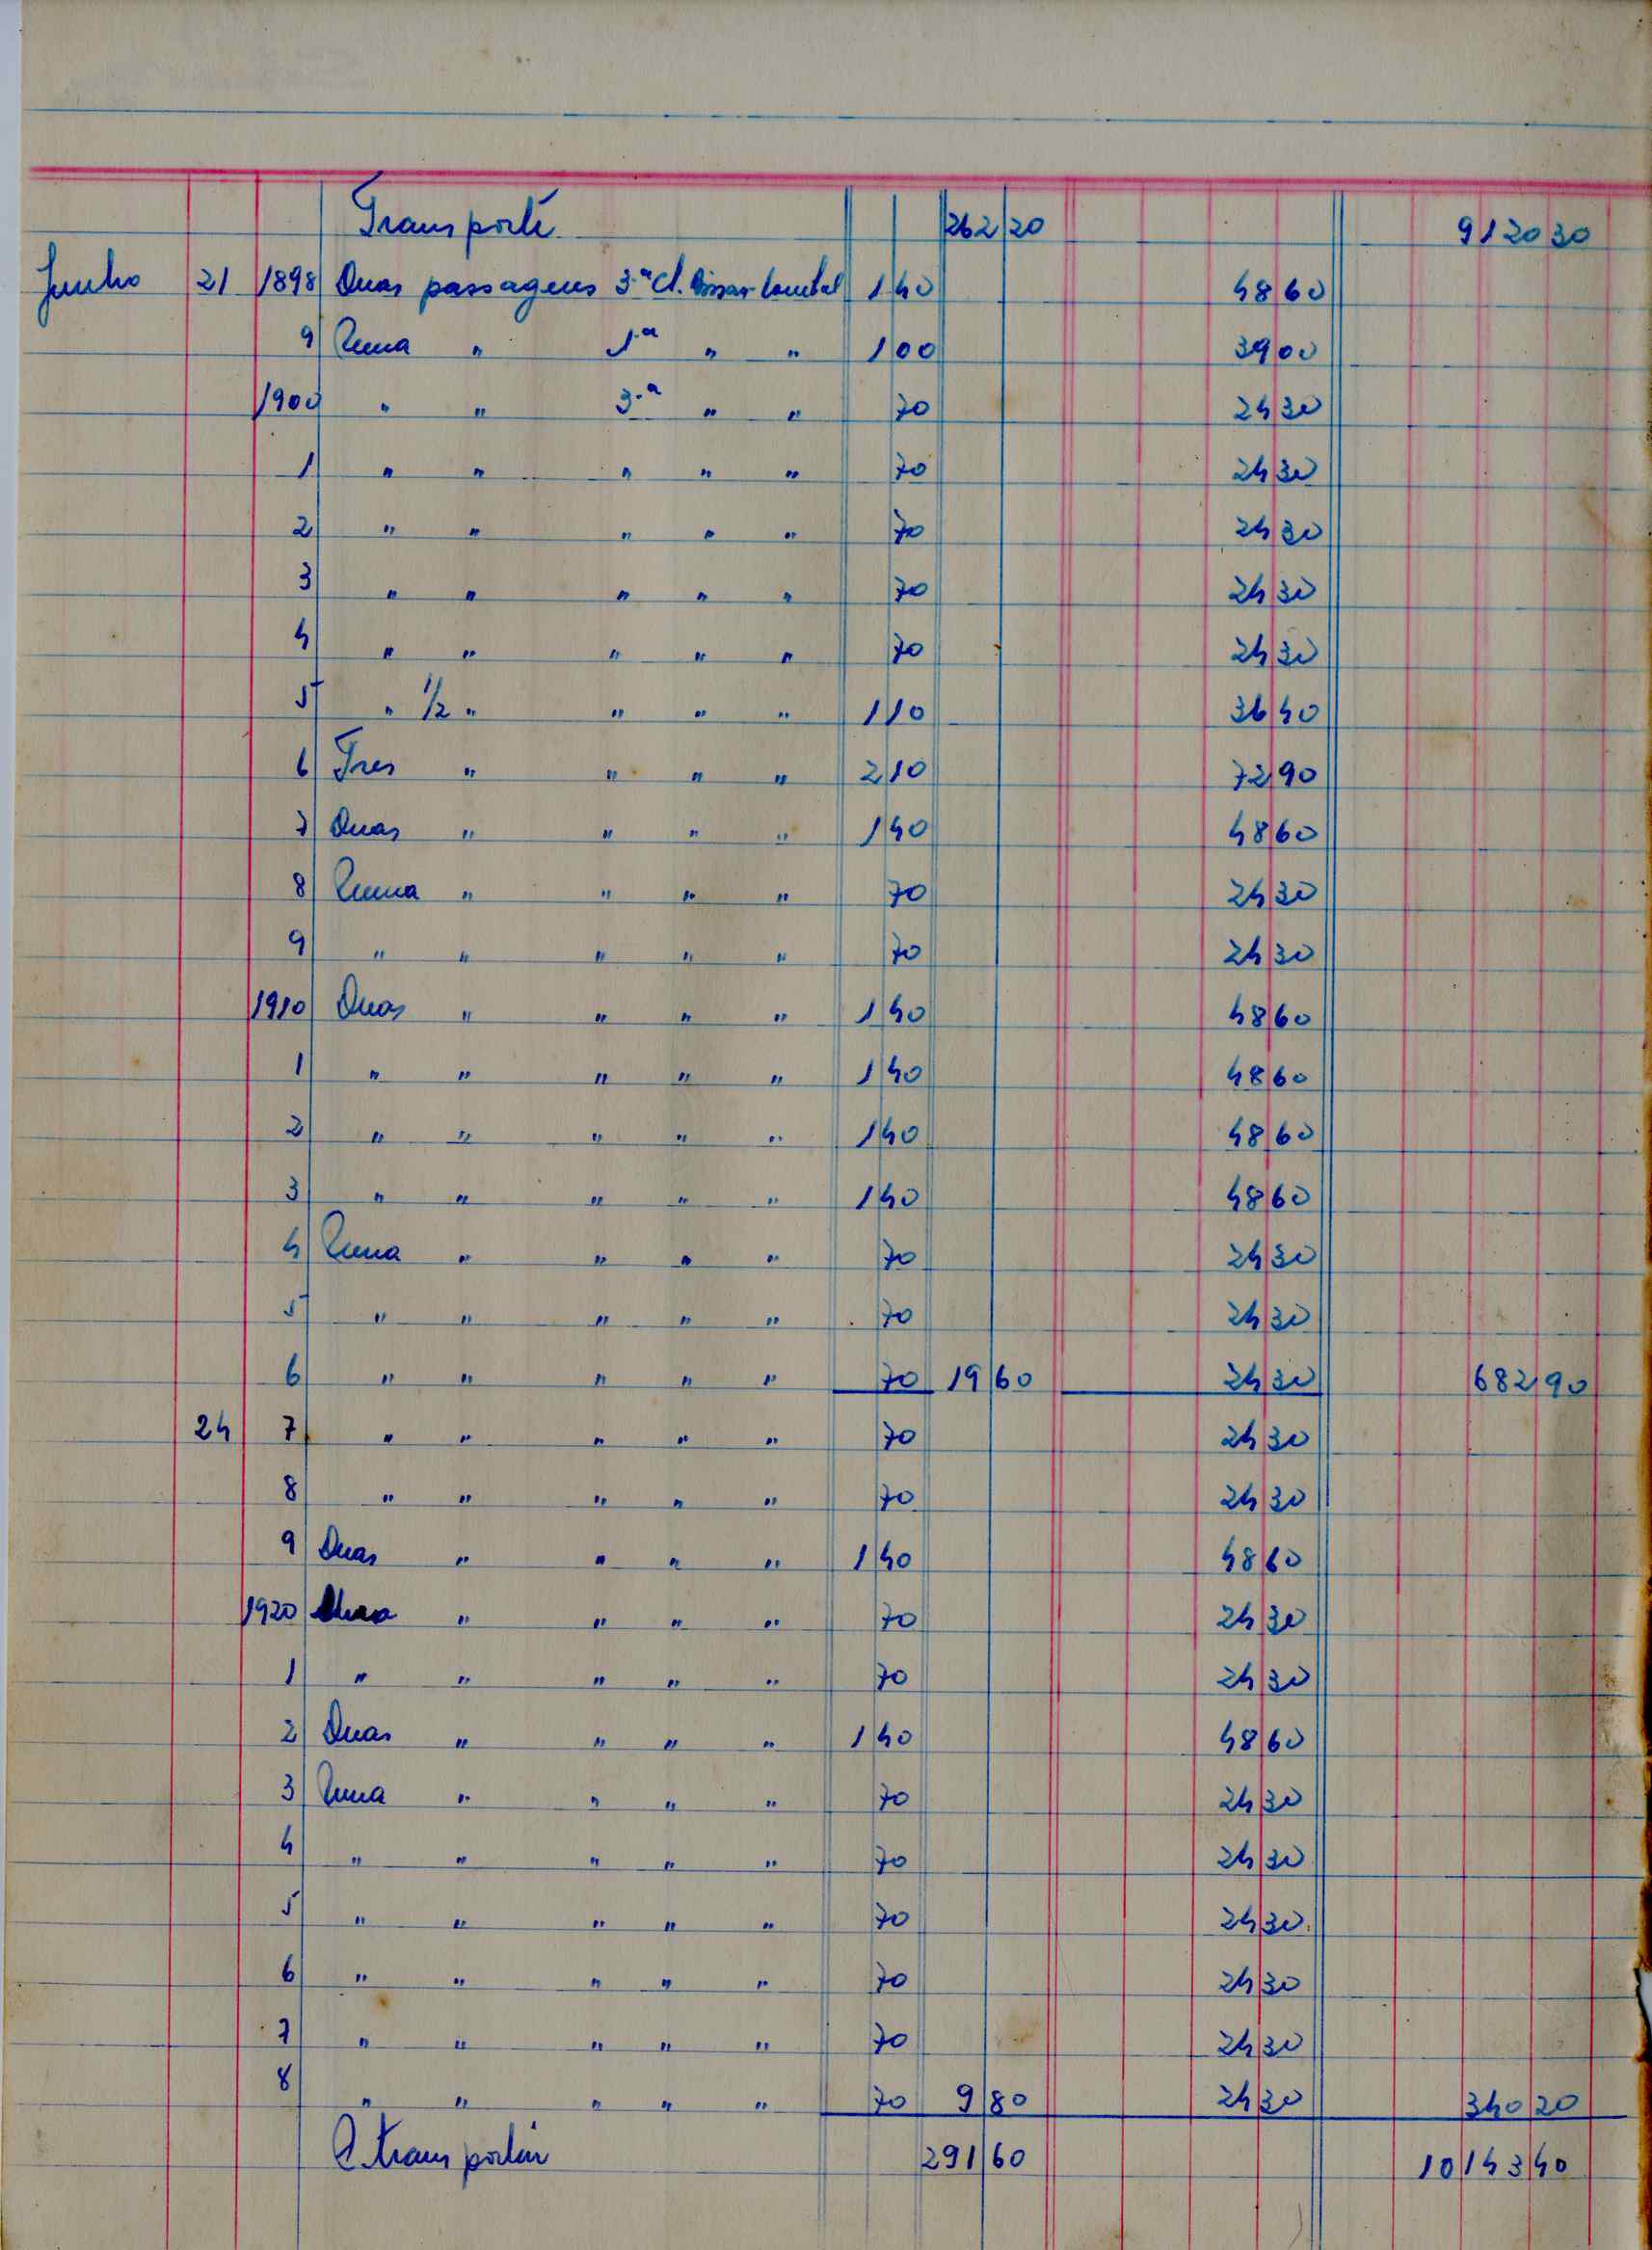 Transporte 262 20 9120 30
Junho 21 1898 Duas passagens 3.ª cl. 1 40 48 60
9 Uma " 1.ª " " 1 00 39 00
1900 " " 3.ª " " 70 24 30
1 " " " " " 70 24 30
2 " " " " " 70 24 30
3 " " " " " 70 24 30
4 " " " " " 70 24 30
5 " 1/2 " " " " 1 10 36 40
6 Tres " " " " 2 10 72 90
7 Duas " " " " 1 40 48 60
8 Uma " " " " 70 24 30
9 " " " " " 70 24 30
1910 Duas " " " " 1 40 48 60
1 " " " " " 1 40 48 60
2 " " " " " 1 40 48 60
3 " " " " " 1 40 48 60
4 Uma " " " " 70 24 30
5 " " " " " 70 24 30
6 " " " " " 70 19 60 24 30 682 90
24 7 " " " " " 70 24 30
8 " " " " " 70 24 30
9 Duas " " " " 1 40 48 60
1920 Uma " " " " 70 24 30
1 " " " " " 70 24 30
2 Duas " " " " 1 40 48 60
3 Uma " " " " 70 24 30
4 " " " " " 70 24 30
5 " " " " " 70 24 30
6 " " " " " 70 24 30
7 " " " " " 70 24 30
8 " " " " " 70 9 80 24 30 340 20
A transportar 291 60 10143 40